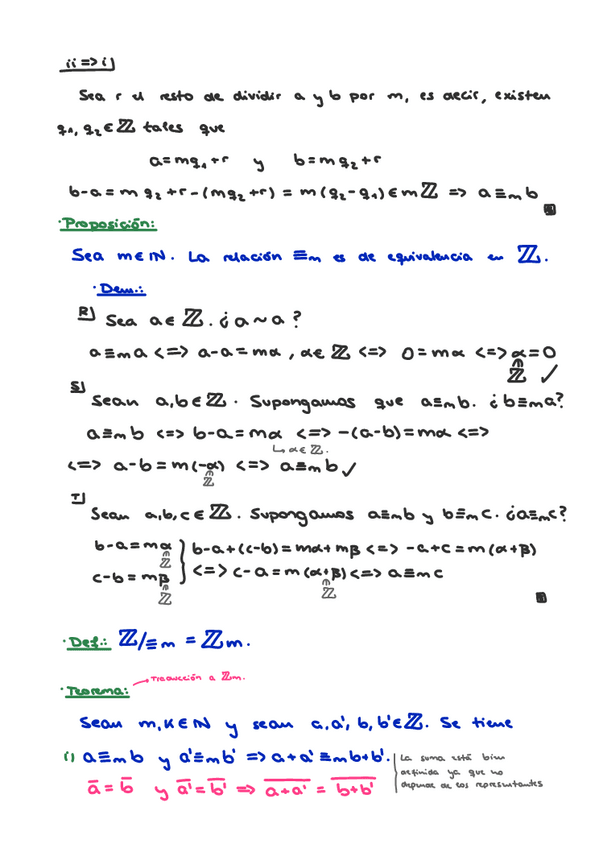 ii => i)
Sea r el resto de dividir a y b por m, es decir, existen
q₁, q₂ ∈ ℤ tales que
a = mq₁ + r y b = mq₂ + r
b - a = m q₂ + r - (mq₂ + r) = m(q₂ - q₁) ∈ mℤ => a ≡m b
· Proposición:
Sea m ∈ ℕ. La relación ≡m es de equivalencia en ℤ.
· Dem.:
R) Sea a ∈ ℤ. ¿a ~ a?
a ≡m a <=> a - a = mα, α ∈ ℤ <=> 0 = mα <=> α = 0
∈ ℤ ✓
S) Sean a, b ∈ ℤ. Supongamos que a ≡m b. ¿b ≡m a?
a ≡m b <=> b - a = mα <=> -(a - b) = mα <=>
↳ α ∈ ℤ.
<=> a - b = m(-α) <=> a ≡m b ✓
∈ ℤ
T) Sean a, b, c ∈ ℤ. Supongamos a ≡m b y b ≡m c. ¿a ≡m c?
b - a = mα } b - a + (c - b) = mα + mβ <=> -a + c = m(α + β)
∈ ℤ
c - b = mβ <=> c - a = m(α + β) <=> a ≡m c
∈ ℤ ∈ ℤ
· Def.: ℤ/≡m = ℤm.
→ Traducción a ℤm.
· Teorema:
Sean m, k ∈ ℕ y sean a, a', b, b' ∈ ℤ. Se tiene
i) a ≡m b y a' ≡m b' => a + a' ≡m b + b'. | La suma está bien
definida ya que no
a̅ = b̅ y a̅'̅ = b̅'̅ => a̅+̅a̅'̅ = b̅+̅b̅'̅ depende de los representantes